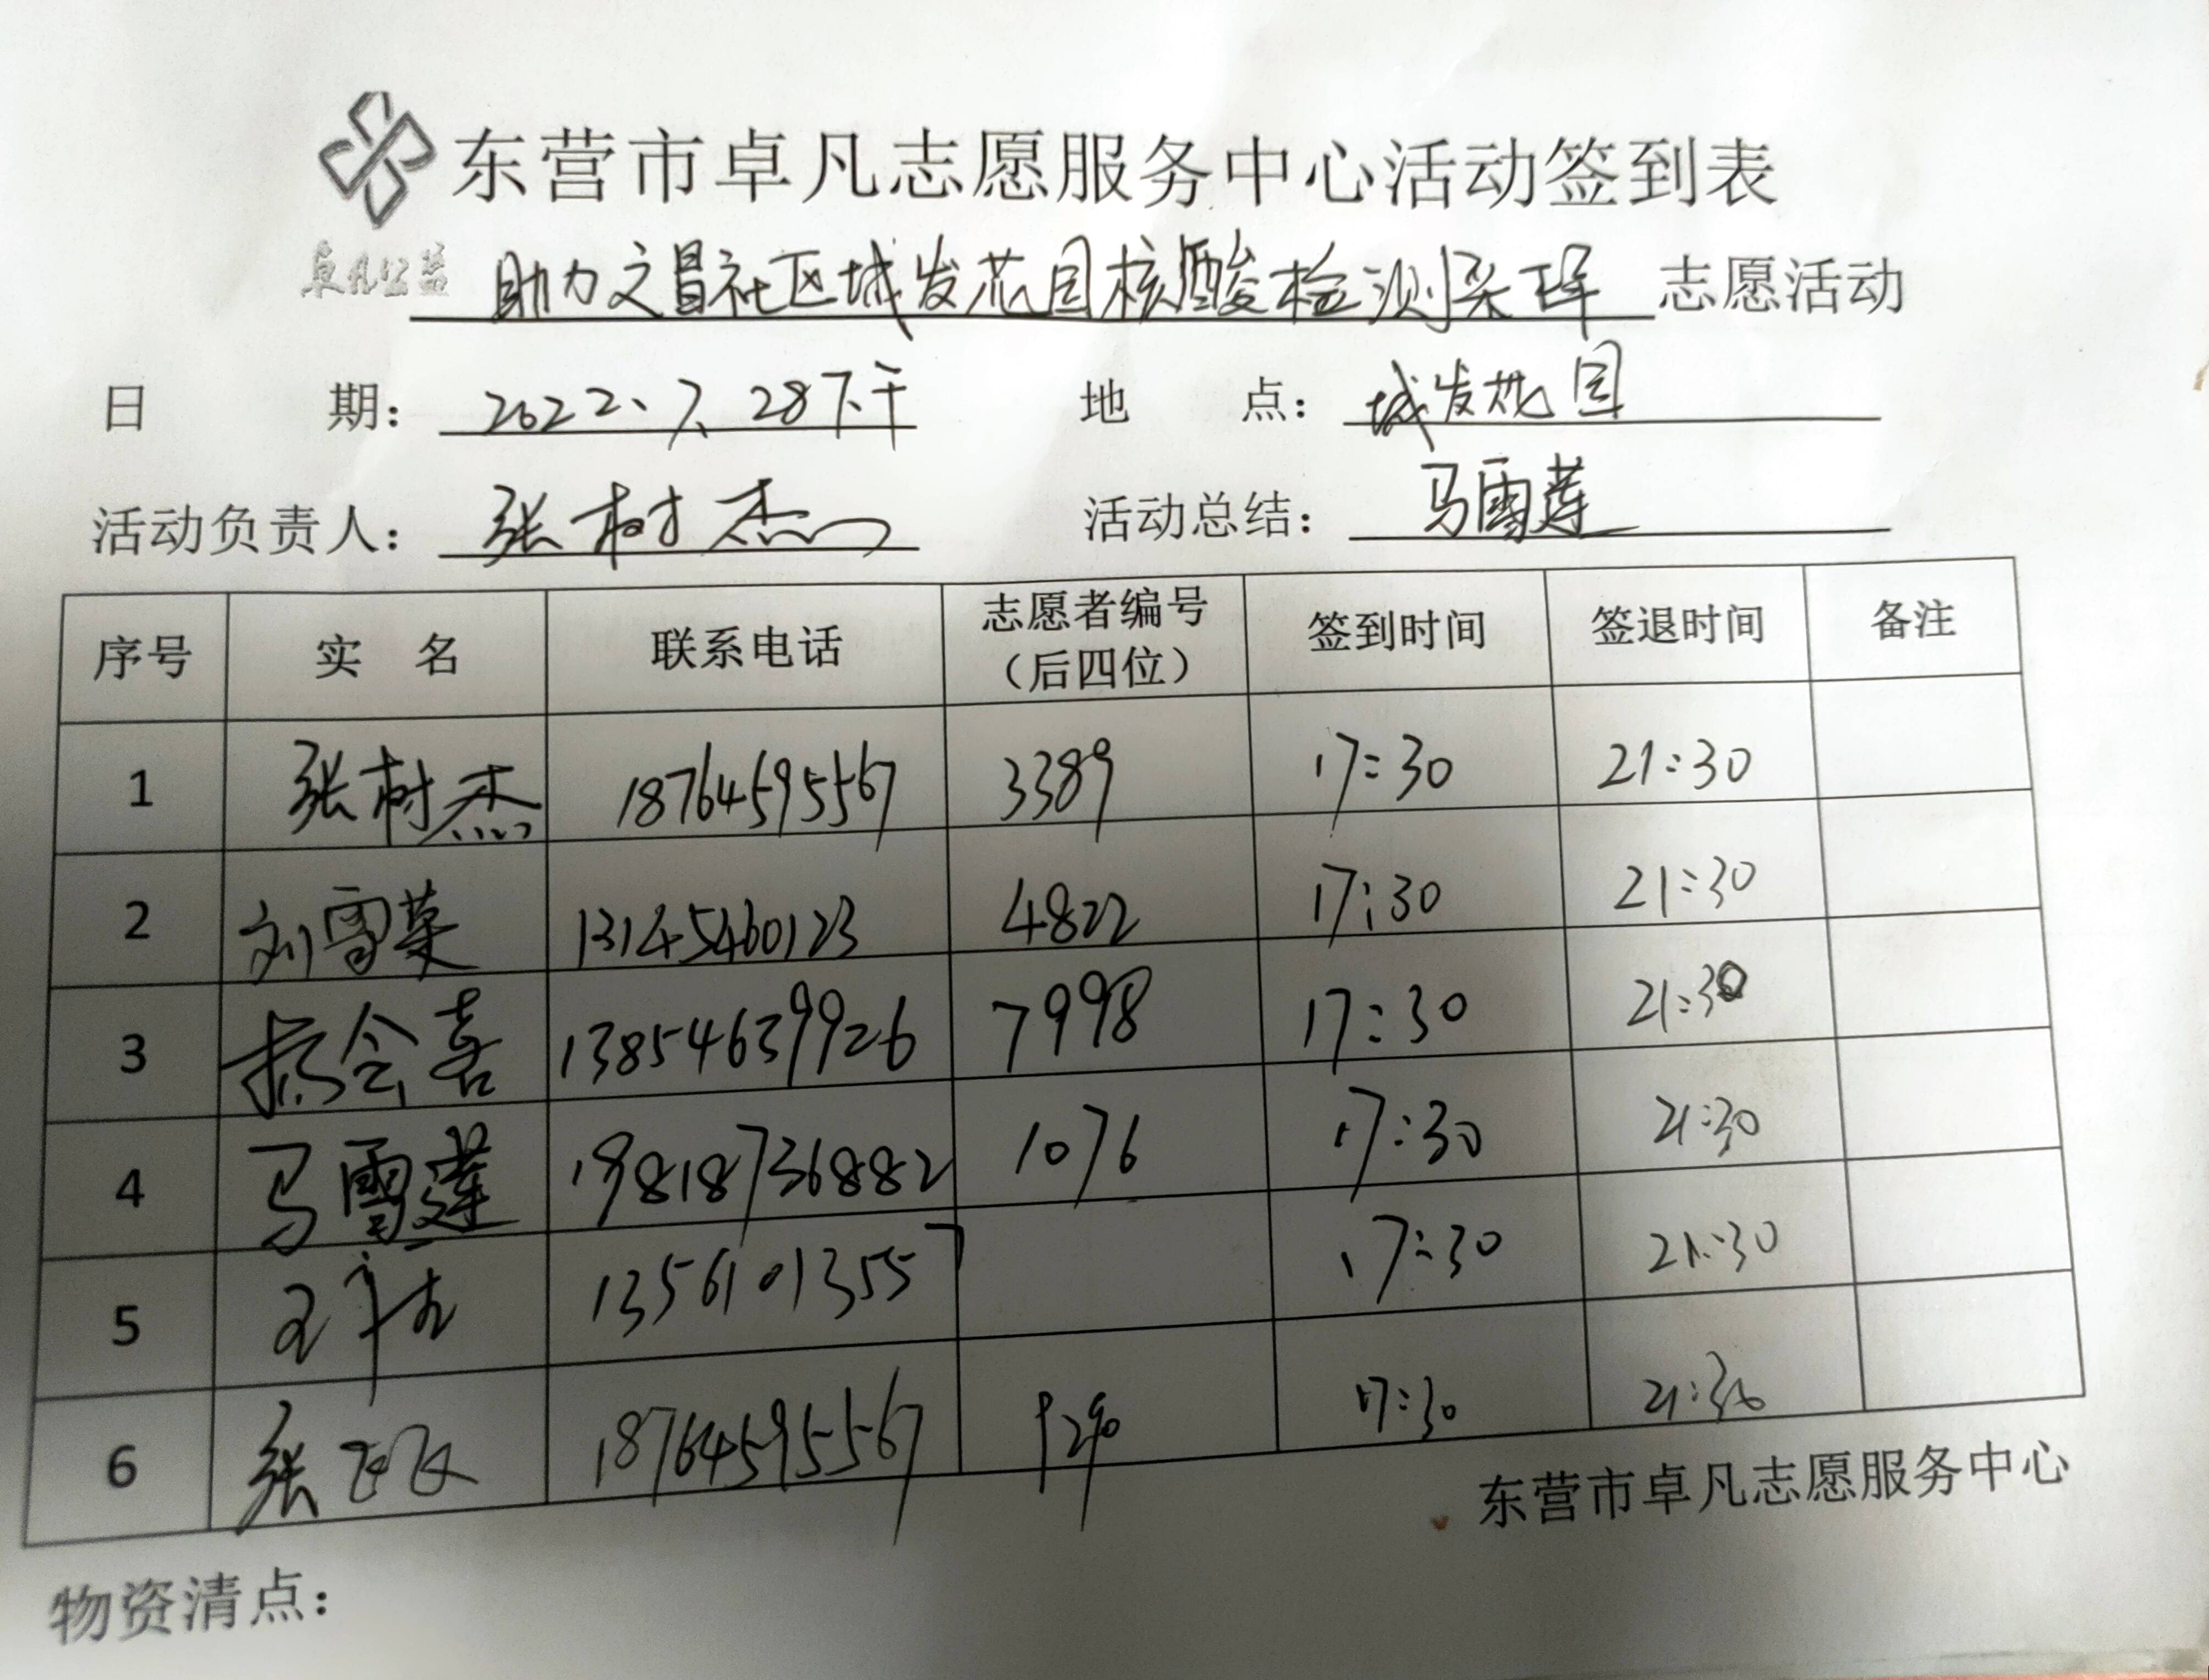 东营市卓凡志愿服务中心活动签到表
卓凡公益
助力文昌社区城发花园核酸检测采样 志愿活动
日 期： 2022、7、28下午 地 点： 城发花园
活动负责人： 张树杰 活动总结： 马雪莲
序号 实 名 联系电话 志愿者编号（后四位） 签到时间 签退时间 备注
1 张树杰 18764595567 3389 17:30 21:30
2 刘雪英 13145460123 4822 17:30 21:30
3 会喜 13854639926 7998 17:30 21:30
4 马雪莲 19818736882 1076 17:30 21:30
5 13561013557 17:30 21:30
6 张飞飞 18764595567 17:30 21:30
东营市卓凡志愿服务中心
物资清点：